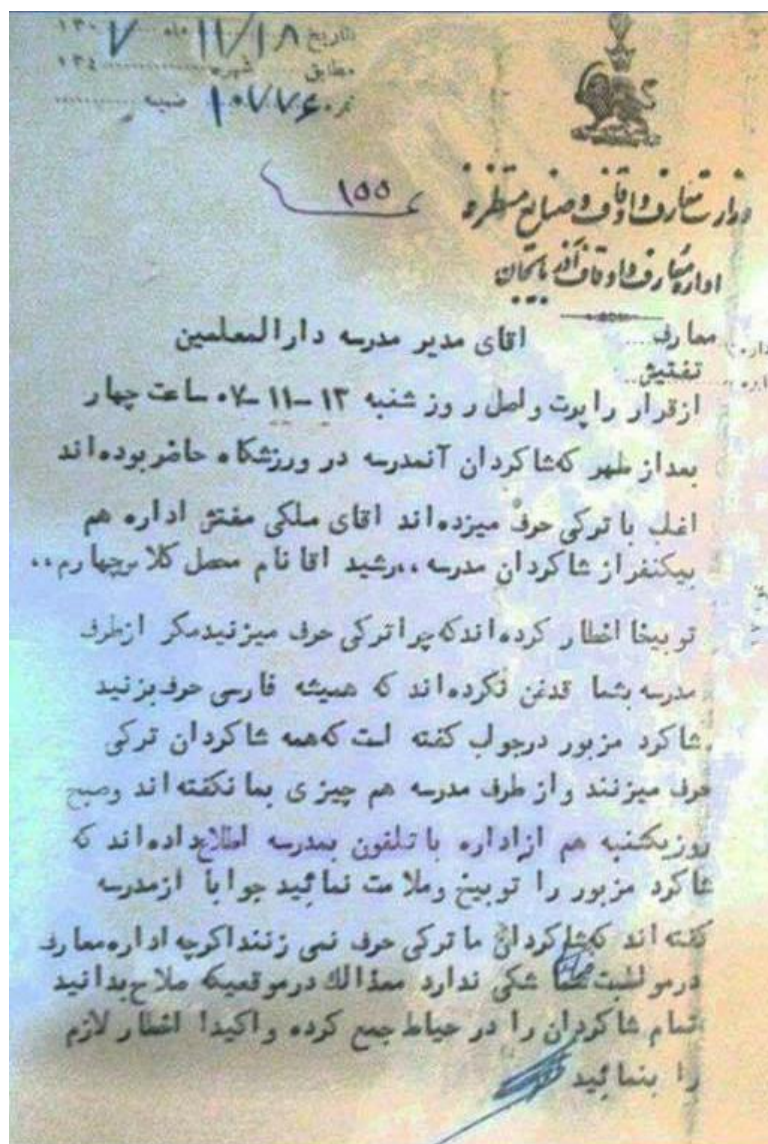 تاریخ ۱۱/۱۸ ماه ۱۳۰۷
مطابق ..... شهر ..... ۱۳۴
نمره ۱۰۷۷۶ ضمیمه ..........
۱۵۵
وزارت معارف و اوقاف و صنایع مستظرفه
اداره معارف و اوقاف آذربایجان
معارف ... اقای مدیر مدرسه دارالمعلمین
تفتیش ...
ازقرار راپوت واصل روز شنبه ۱۳-۱۱-۰۷ ساعت چهار
بعداز ظهر که شاکردان آنمدرسه در ورزشکاه حاضر بوده اند
اغلب با ترکی حرف میزده اند اقای ملکی مفتش اداره هم
بیکنفر از شاکردان مدرسه ،،رشید اقا نام محصل کلاس چهارم،،
توبیخا اخطار کرده اند که چرا ترکی حرف میزنید مکر ازطرف
مدرسه بشما قدغن نکرده اند که همیشه فارسی حرف بزنید
شاکرد مزبور درجواب کفته است که همه شاکردان ترکی
حرف میزنند و از طرف مدرسه هم چیزی بما نکفته اند وصبح
روزیکشنبه هم ازاداره با تلفون بمدرسه اطلاع داده اند که
شاکرد مزبور را توبیخ وملامت نمائید جوابا ازمدرسه
کفته اند که شاکردان ما ترکی حرف نمی زنند اکرچه اداره معارف
درمواظبت شما شکی ندارد معذالك درموقعیکه صلاح بدانید
تمام شاکردان را در حیاط جمع کرده واکیدا اخطار لازم
را بنمائید